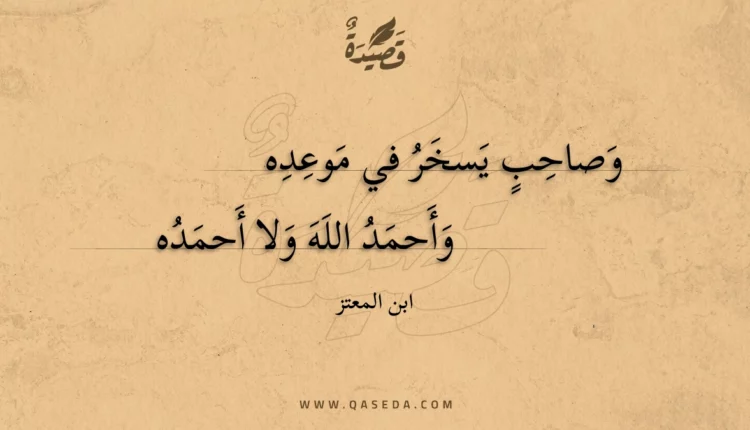 قَصِيْدَةٌ
وَصاحِبٍ يَسخَرُ في مَوعِدِه
وَأَحمَدُ اللَهَ وَلا أَحمَدُه
ابن المعتز
WWW.QASEDA.COM